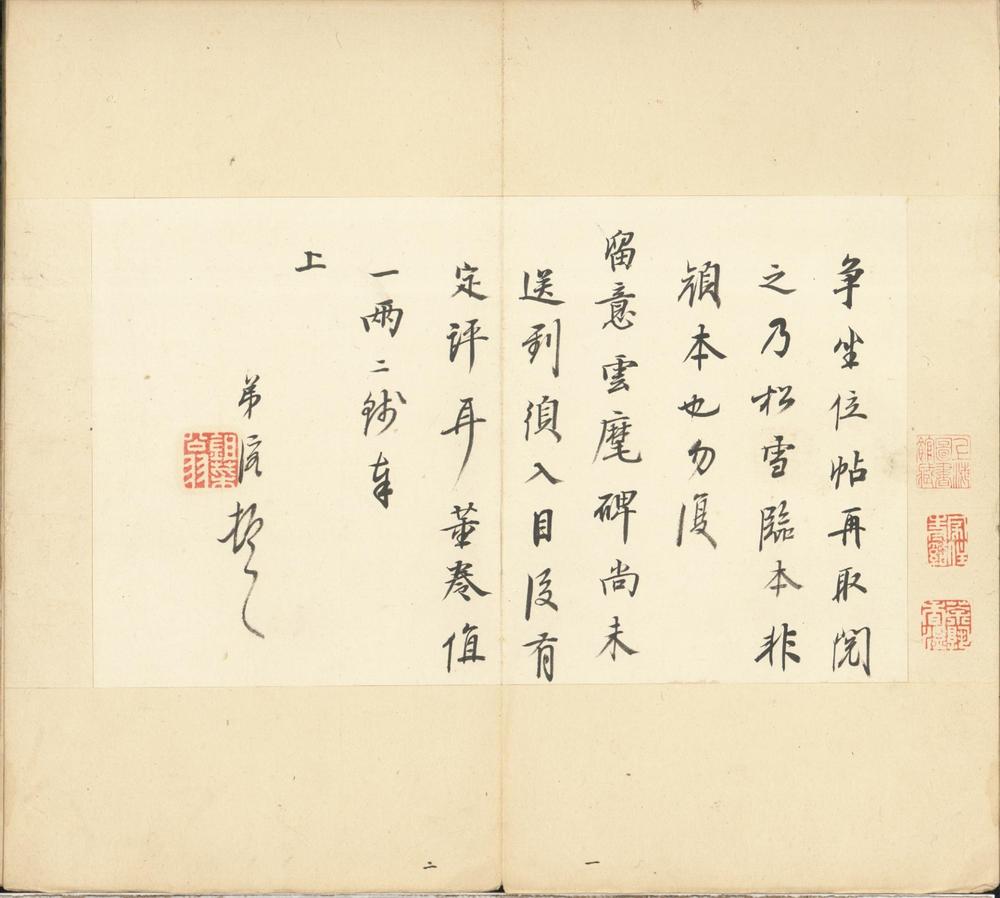 爭坐位帖再取閱
之乃松雪臨本非
顔本也勿復
留意雲麾碑尚未
送到須入目後有
定評耳董卷值
一兩二錢奉
上
弟容頓首
一
二